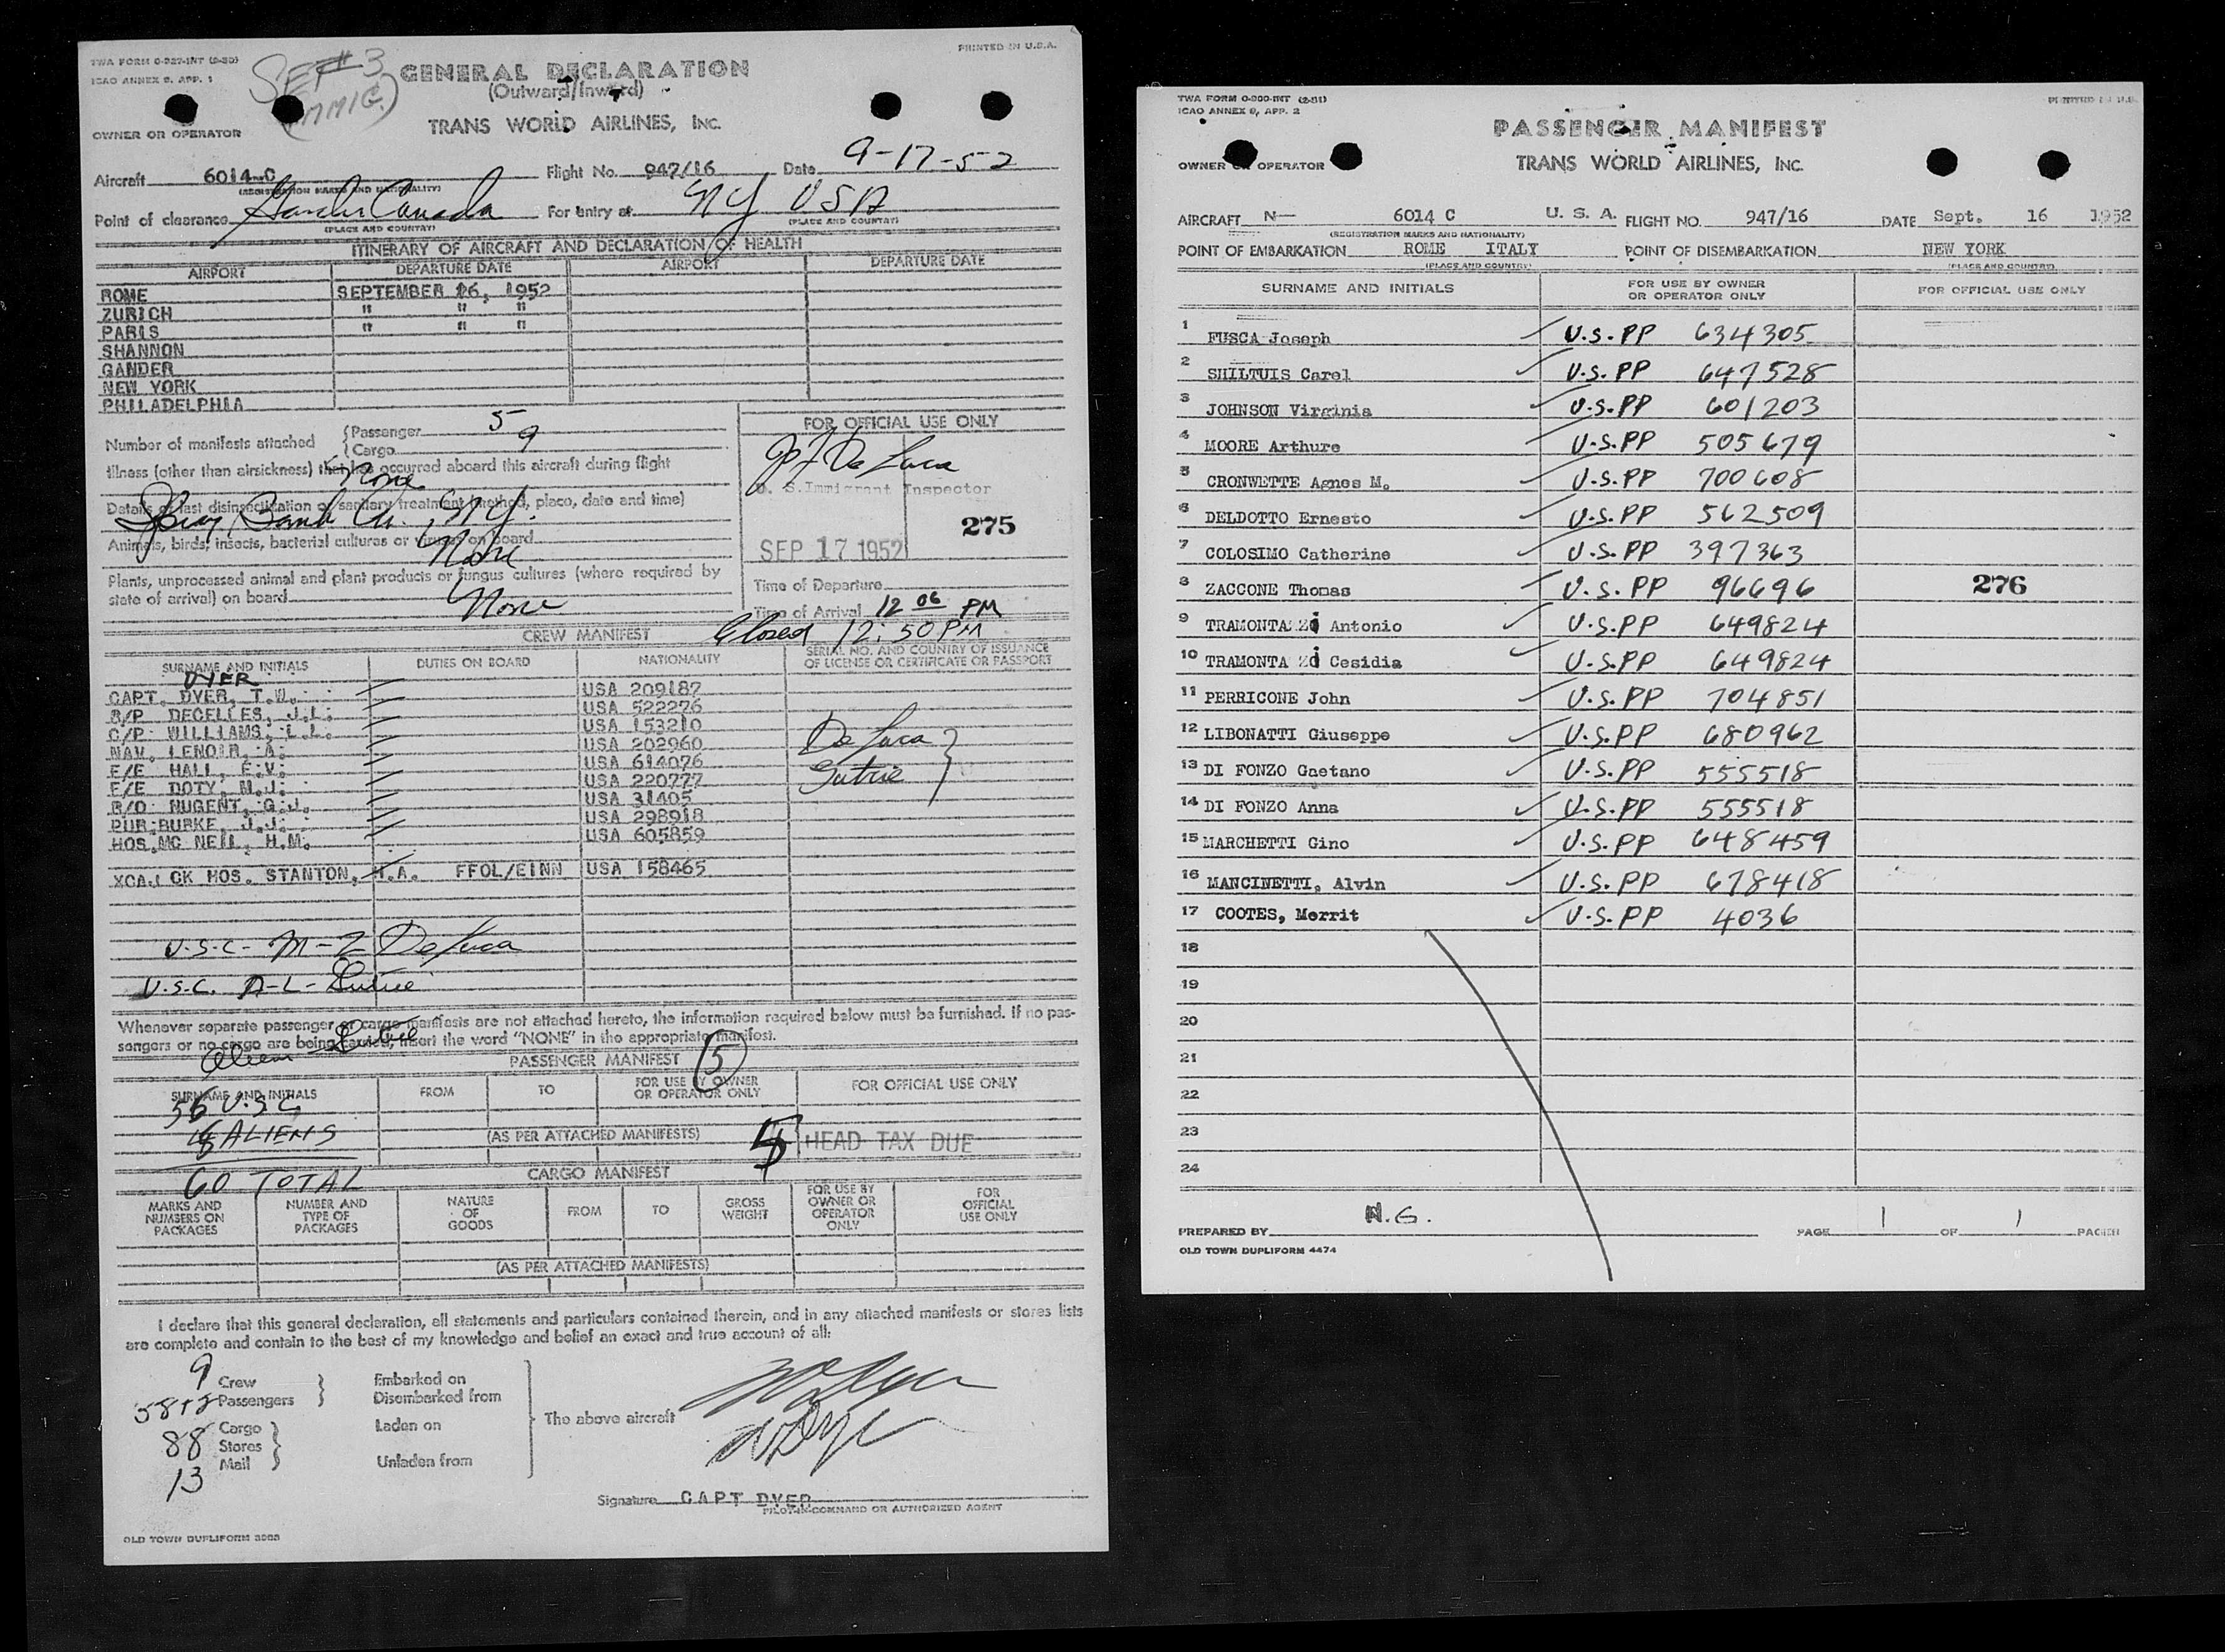 TWA FORM 0-927-INT (2-50)
ICAO ANNEX 9, APP. 1
PRINTED IN U.S.A.
SET #3
(IMMIG.)
GENERAL DECLARATION
(Outward/Inward)
OWNER OR OPERATOR
TRANS WORLD AIRLINES, INC.
Aircraft 6014-C Flight No. 947/16 Date 9-17-52
(REGISTRATION MARKS AND NATIONALITY)
Point of clearance Gander Canada For entry at NY USA
(PLACE AND COUNTRY) (PLACE AND COUNTRY)
ITINERARY OF AIRCRAFT AND DECLARATION OF HEALTH
AIRPORT DEPARTURE DATE AIRPORT DEPARTURE DATE
ROME SEPTEMBER 16, 1952
ZURICH " " "
PARIS " " "
SHANNON
GANDER
NEW YORK
PHILADELPHIA
Number of manifests attached { Passenger 5
{ Cargo 9
Illness (other than airsickness) that has occurred aboard this aircraft during flight
None
Details of last disinsectization or sanitary treatment (method, place, date and time)
Spray Bomb , N.Y.
Animals, birds, insects, bacterial cultures or viruses on board
None
Plants, unprocessed animal and plant products or fungus cultures (where required by
state of arrival) on board None
FOR OFFICIAL USE ONLY
De Luca
U. S. Immigrant Inspector
275
SEP 17 1952
Time of Departure
Time of Arrival 12 06 PM
Closed 12:50 PM
CREW MANIFEST
SURNAME AND INITIALS DUTIES ON BOARD NATIONALITY SERIAL NO. AND COUNTRY OF ISSUANCE
OF LICENSE OR CERTIFICATE OR PASSPORT
DYER
CAPT. DYER, T.W. USA 209187
R/P DECELLES, J.L. USA 522276
C/P WILLIAMS, L.L. USA 153210
NAV. LENOIR, A. USA 202960
F/E HALL, E.V. USA 614076
F/E DOTY, M.J. USA 220777
R/O NUGENT, G.J. USA 31405
PUR BURKE, J.J. USA 298918
HOS. MC NEIL, H.M. USA 605859
De Luca }
XCA.J CK HOS. STANTON, .A. FFOL/EINN USA 158465
U.S.C. - M-Z De Luca
U.S.C. A-L -
Whenever separate passenger or cargo manifests are not attached hereto, the information required below must be furnished. If no pas-
sengers or no cargo are being carried, insert the word "NONE" in the appropriate manifest.
PASSENGER MANIFEST 5
SURNAME AND INITIALS FROM TO FOR USE BY OWNER
OR OPERATOR ONLY FOR OFFICIAL USE ONLY
56 U.S.C.
ALIENS (AS PER ATTACHED MANIFESTS) HEAD TAX DUE
60 TOTAL
CARGO MANIFEST
MARKS AND
NUMBERS ON
PACKAGES
NUMBER AND
TYPE OF
PACKAGES
NATURE
OF
GOODS
FROM
TO
GROSS
WEIGHT
FOR USE BY
OWNER OR
OPERATOR
ONLY
FOR
OFFICIAL
USE ONLY
(AS PER ATTACHED MANIFESTS)
I declare that this general declaration, all statements and particulars contained therein, and in any attached manifests or stores lists
are complete and contain to the best of my knowledge and belief an exact and true account of all:
9 Crew } Embarked on
58+2 Passengers } Disembarked from
88 Cargo } Laden on
Stores }
13 Mail } Unladen from
The above aircraft
Signature CAPT DYER
PILOT-IN-COMMAND OR AUTHORIZED AGENT
OLD TOWN DUPLIFORM
TWA FORM 0-900-INT (2-51)
ICAO ANNEX 9, APP. 2
PRINTED IN U.S.
PASSENGER MANIFEST
OWNER OR OPERATOR TRANS WORLD AIRLINES, INC.
AIRCRAFT N— 6014 C U. S. A. FLIGHT NO. 947/16 DATE Sept. 16 1952
(REGISTRATION MARKS AND NATIONALITY)
POINT OF EMBARKATION ROME ITALY POINT OF DISEMBARKATION NEW YORK
(PLACE AND COUNTRY) (PLACE AND COUNTRY)
SURNAME AND INITIALS FOR USE BY OWNER
OR OPERATOR ONLY FOR OFFICIAL USE ONLY
1 FUSCA Joseph U.S. PP 634305
2 SHILTUIS Carel U.S. PP 647528
3 JOHNSON Virginia U.S. PP 601203
4 MOORE Arthure U.S. PP 505679
5 CRONWETTE Agnes M. U.S. PP 700608
6 DELDOTTO Ernesto U.S. PP 562509
7 COLOSIMO Catherine U.S. PP 397363
8 ZACCONE Thomas U.S. PP 96696 276
9 TRAMONTAZZI Antonio U.S. PP 649824
10 TRAMONTAZZI Cesidia U.S. PP 649824
11 PERRICONE John U.S. PP 704851
12 LIBONATTI Giuseppe U.S. PP 680962
13 DI FONZO Gaetano U.S. PP 555518
14 DI FONZO Anna U.S. PP 555518
15 MARCHETTI Gino U.S. PP 648459
16 MANCINETTI, Alvin U.S. PP 678418
17 COOTES, Merrit U.S. PP 4036
18
19
20
21
22
23
24
PREPARED BY N.G. PAGE 1 OF 1 PAGES
OLD TOWN DUPLIFORM 4474